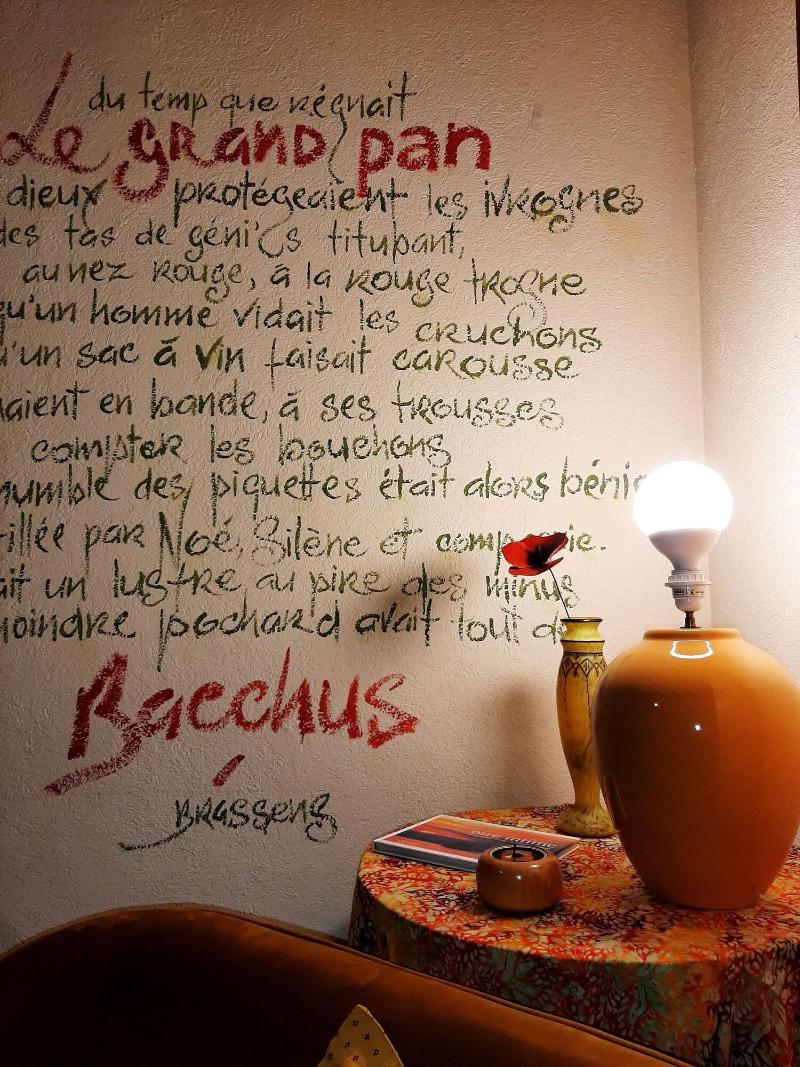 du temp que régnait
Le grand pan
dieux protégeaient les ivrognes
des tas de génies titubant,
au nez rouge, à la rouge trogne
qu'un homme vidait les cruchons
qu'un sac à vin faisait carousse
aient en bande, à ses trousses
compter les bouchons
humble des piquettes était alors bénie
illée par Noé, Silène et compagnie.
ait un lustre au pire des minus
moindre pochard avait tout de
Bacchus
Brassens